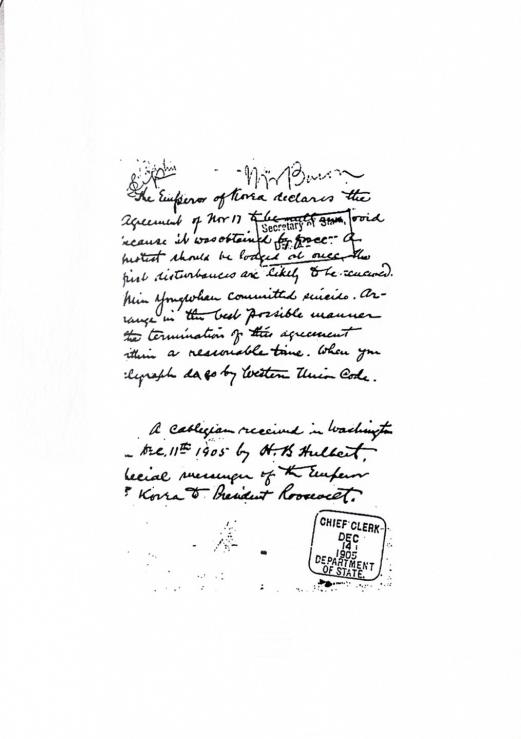 The Emperor of Korea declares the
agreement of Nov 17 to be null void
because it was obtained by force. A
Secretary of State,
protest should be lodged at once, the
first disturbances are likely to be renewed.
Min Yongwhan committed suicide. Ar-
range in the best possible manner
the termination of this agreement
within a reasonable time. When you
telegraph do so by Western Union Code.
A cablegram received in Washington
Dec. 11th 1905 by H. B Hulbert,
special messenger of the Emperor
of Korea to President Roosevelt.
CHIEF CLERK
DEC
14
1905
DEPARTMENT
OF STATE.